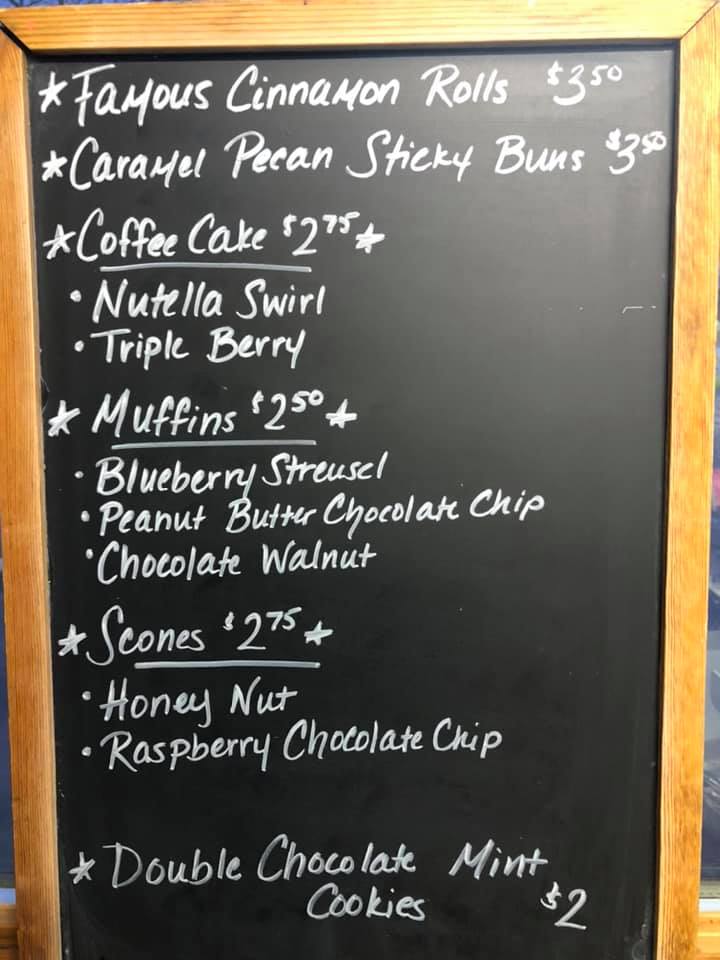 ★ Famous Cinnamon Rolls $3.50
★ Caramel Pecan Sticky Buns $3.50
★ Coffee Cake $2.75 ★
• Nutella Swirl
• Triple Berry
★ Muffins $2.50 ★
• Blueberry Streusel
• Peanut Butter Chocolate Chip
• Chocolate Walnut
★ Scones $2.75 ★
• Honey Nut
• Raspberry Chocolate Chip
★ Double Chocolate Mint
Cookies $2